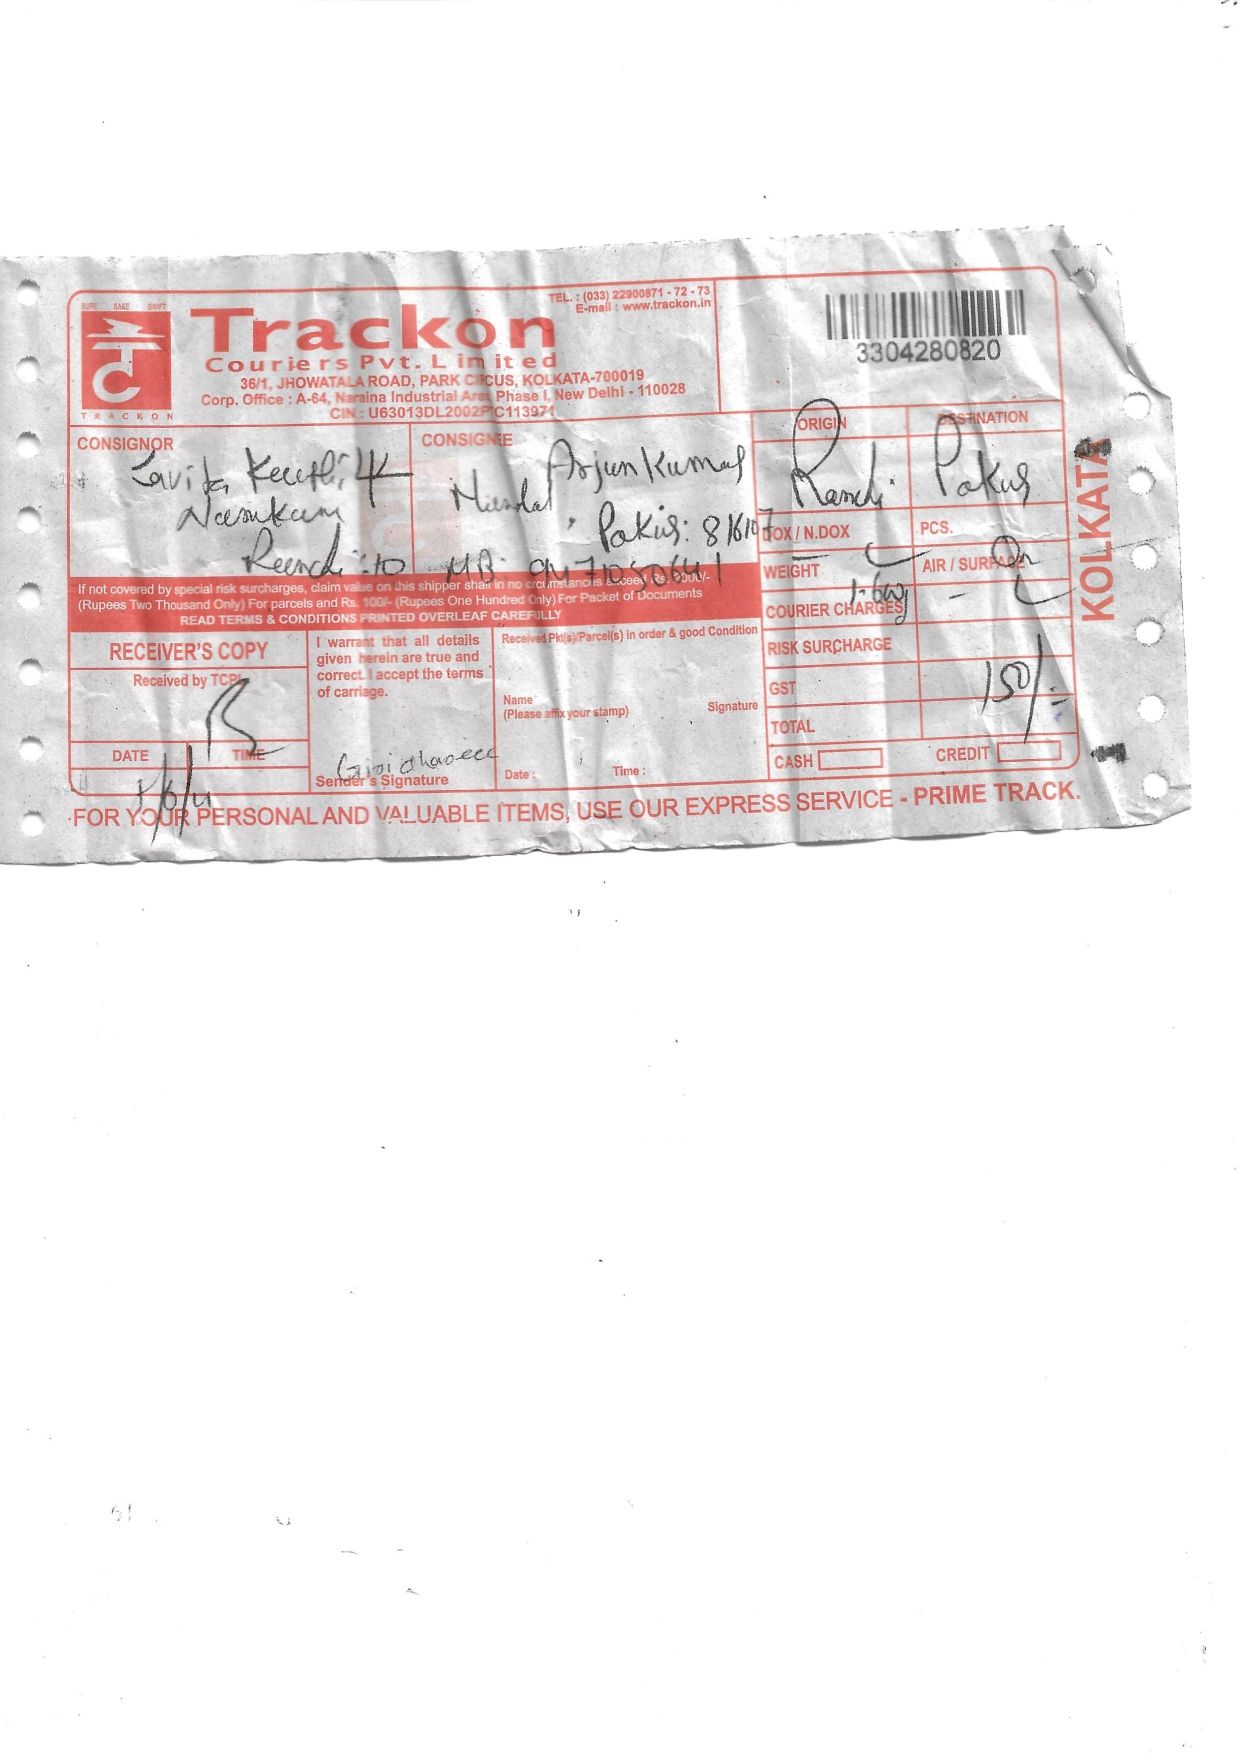 SURE SAFE SWIFT
TRACKON
Trackon
Couriers Pvt. Limited
36/1, JHOWATALA ROAD, PARK CIRCUS, KOLKATA-700019
Corp. Office : A-64, Naraina Industrial Area Phase I, New Delhi - 110028
CIN : U63013DL2002PTC113971
TEL. : (033) 22900871 - 72 - 73
E-mail : www.trackon.in
3304280820
CONSIGNOR
Namkum
Ranchi :10
CONSIGNEE
Arjun Kumar
Mandal
, Pakur: 816107
MB:
ORIGIN
Ranchi
DESTINATION
Pakur
DOX / N.DOX
PCS.
WEIGHT
AIR / SURFACE
COURIER CHARGES
RISK SURCHARGE
GST
150/-
TOTAL
CASH
CREDIT
KOLKATA
If not covered by special risk surcharges, claim value on this shipper shall in no crcumstances exceed Rs. 2000/-
(Rupees Two Thousand Only) For parcels and Rs. 100/- (Rupees One Hundred Only) For Packet of Documents
READ TERMS & CONDITIONS PRINTED OVERLEAF CAREFULLY
RECEIVER'S COPY
Received by TCPL
DATE
TIME
I warrant that all details
given herein are true and
correct. I accept the terms
of carriage.
Sender's Signature
Received Pkt(s)/Parcel(s) in order & good Condition
Name
(Please affix your stamp)
Signature
Date :
Time :
FOR YOUR PERSONAL AND VALUABLE ITEMS, USE OUR EXPRESS SERVICE - PRIME TRACK.